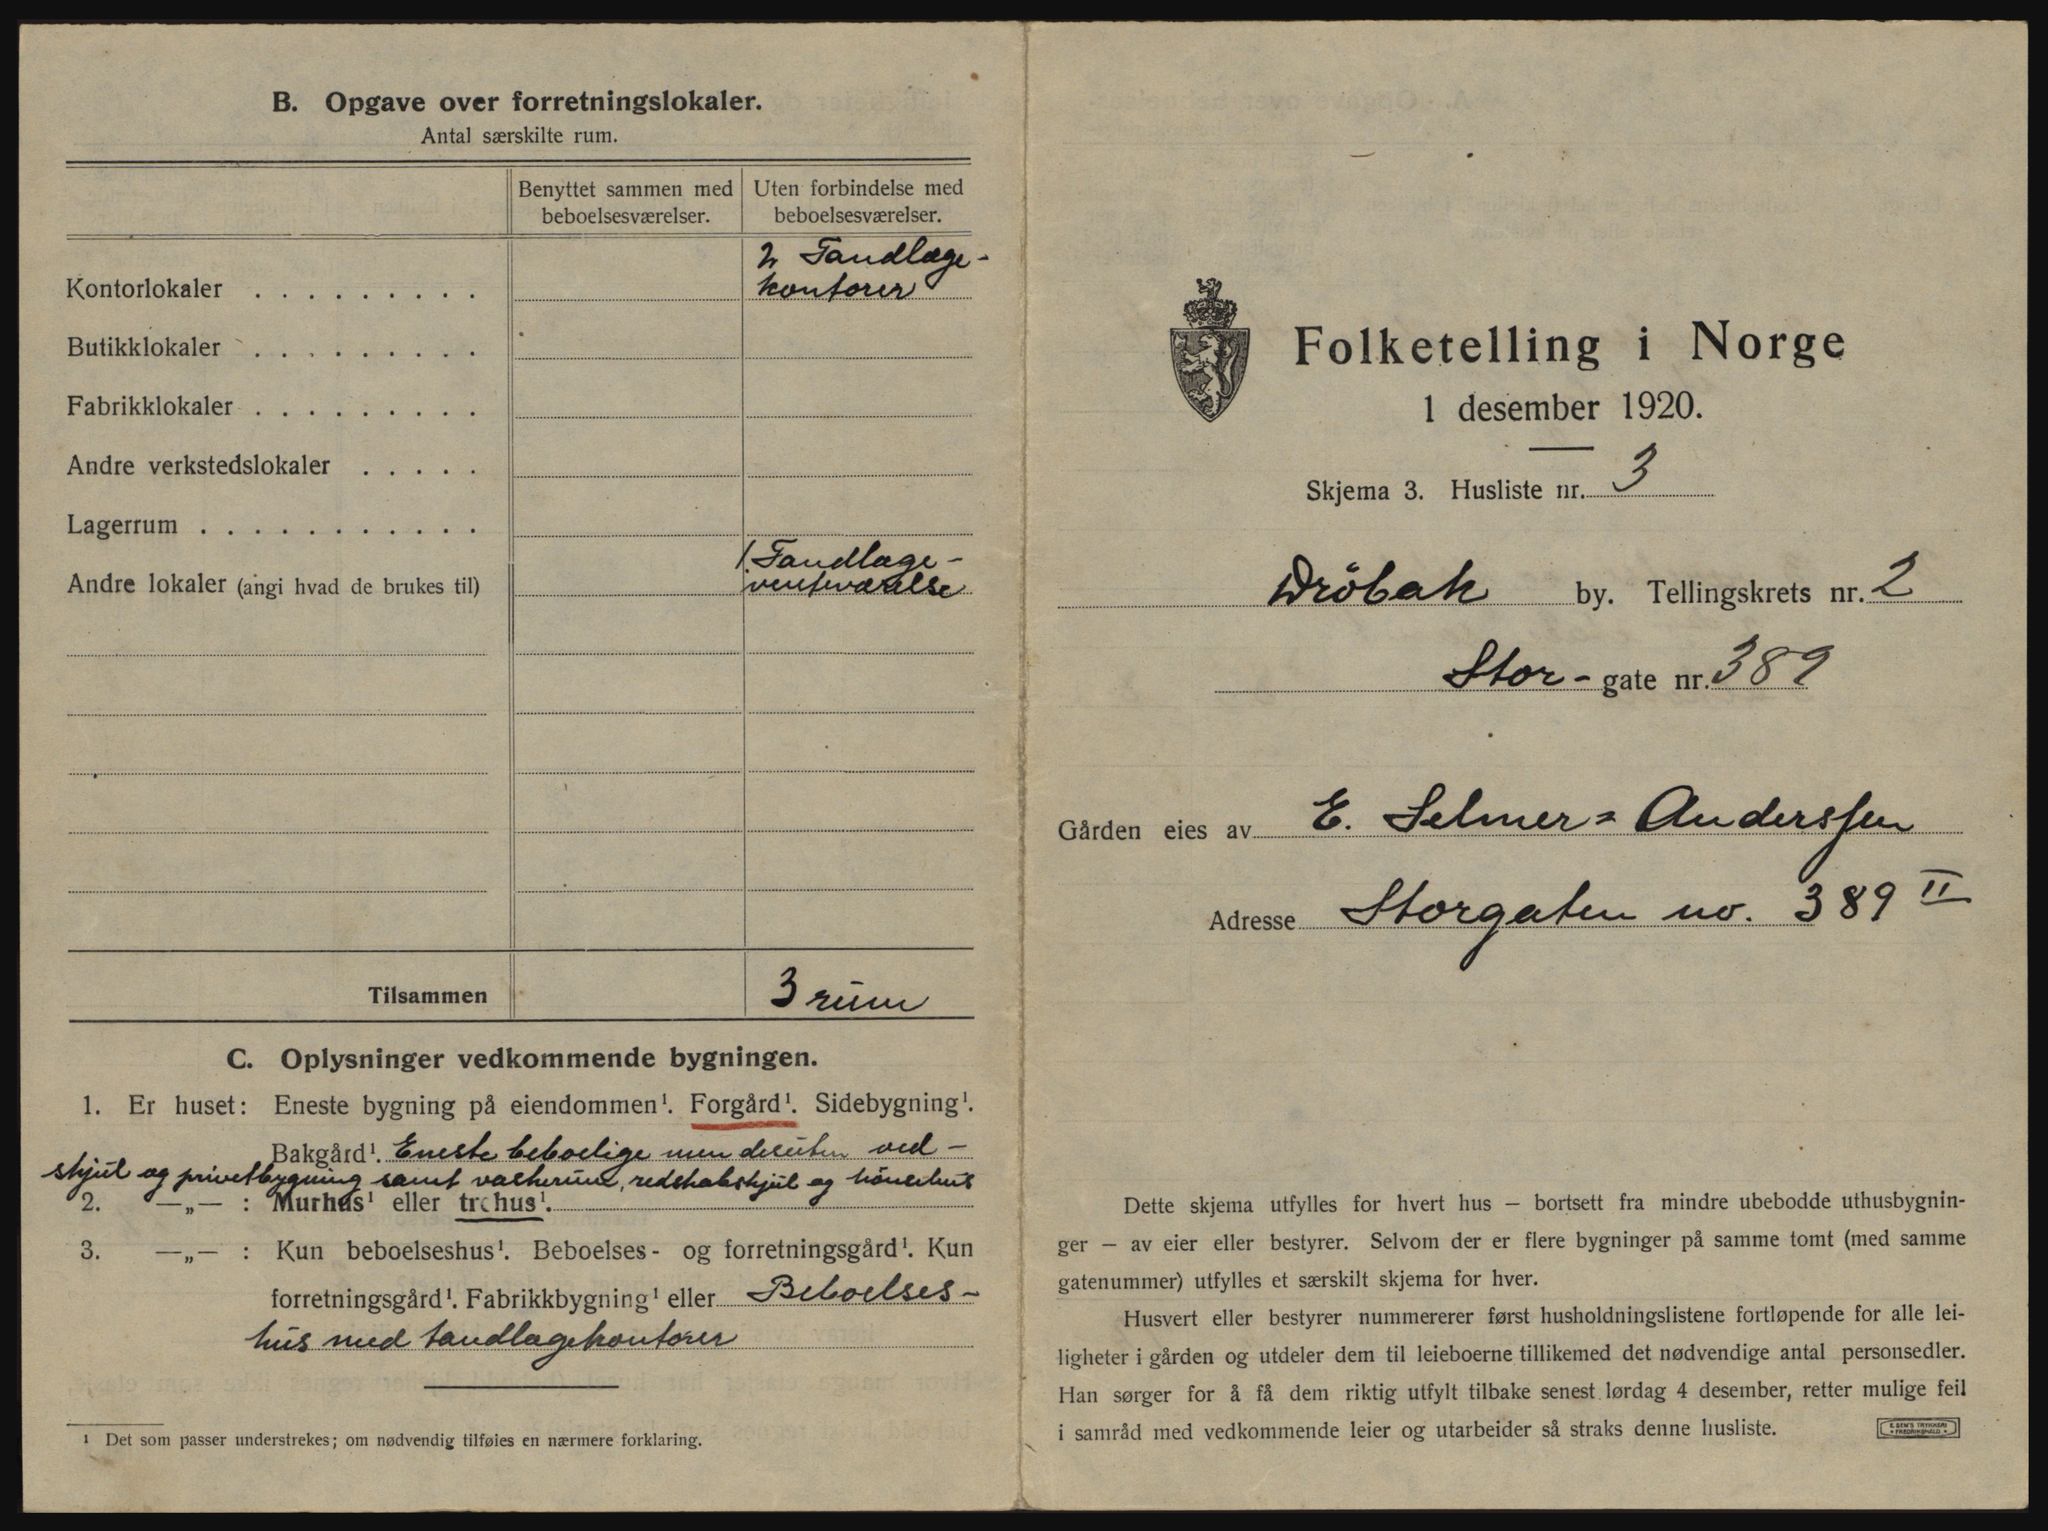 B. Opgave over forretningslokaler.
Antal særskilte rum.
Benyttet sammen med beboelsesværelser.
Uten forbindelse med beboelsesværelser.
2 Tandlæge-
Kontorlokaler . . . . . . . . . kontorer
Butikklokaler . . . . . . . . .
Fabrikklokaler . . . . . . . . .
Andre verkstedslokaler . . . . .
Lagerrum . . . . . . . . . . . .
1 Tandlæge-
Andre lokaler (angi hvad de brukes til) venteværelse
Tilsammen 3 rum
C. Oplysninger vedkommende bygningen.
1. Er huset: Eneste bygning på eiendommen¹. Forgård¹. Sidebygning¹.
Bakgård¹. Eneste beboelige men desuten ved-
skjul og privetbygning samt vaskerum, redskabskjul og hönsehus
2. —„— : Murhus¹ eller trehus¹.
3. —„— : Kun beboelseshus¹. Beboelses- og forretningsgård¹. Kun
forretningsgård¹. Fabrikkbygning¹ eller Beboelses-
hus med tandlægekontorer
¹ Det som passer understrekes; om nødvendig tilføies en nærmere forklaring.
Folketelling i Norge
1 desember 1920.
Skjema 3. Husliste nr. 3
Dröbak by. Tellingskrets nr. 2
Stor- gate nr. 389
Gården eies av E. Selmer=Anderssen
Adresse Storgaten no. 389 II
Dette skjema utfylles for hvert hus – bortsett fra mindre ubebodde uthusbygnin-
ger – av eier eller bestyrer. Selvom der er flere bygninger på samme tomt (med samme
gatenummer) utfylles et særskilt skjema for hver.
Husvert eller bestyrer nummererer først husholdningslistene fortløpende for alle lei-
ligheter i gården og utdeler dem til leieboerne tillikemed det nødvendige antal personsedler.
Han sørger for å få dem riktig utfylt tilbake senest lørdag 4 desember, retter mulige feil
i samråd med vedkommende leier og utarbeider så straks denne husliste.
E. SEM'S TRYKKERI
• FREDRIKSHALD •